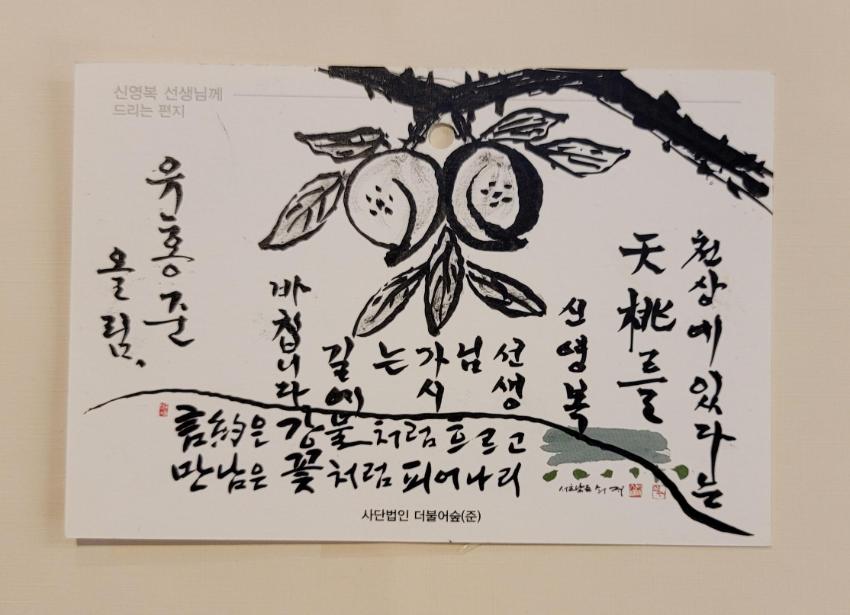 신영복 선생님께
드리는 편지
천상에 있다는
天桃를
신영복
선생
님
가시
는
길에
바칩니다
유홍준
올림.
言約은 강물처럼 흐르고
만남은 꽃처럼 피어나리
사단법인 더불어숲(준)